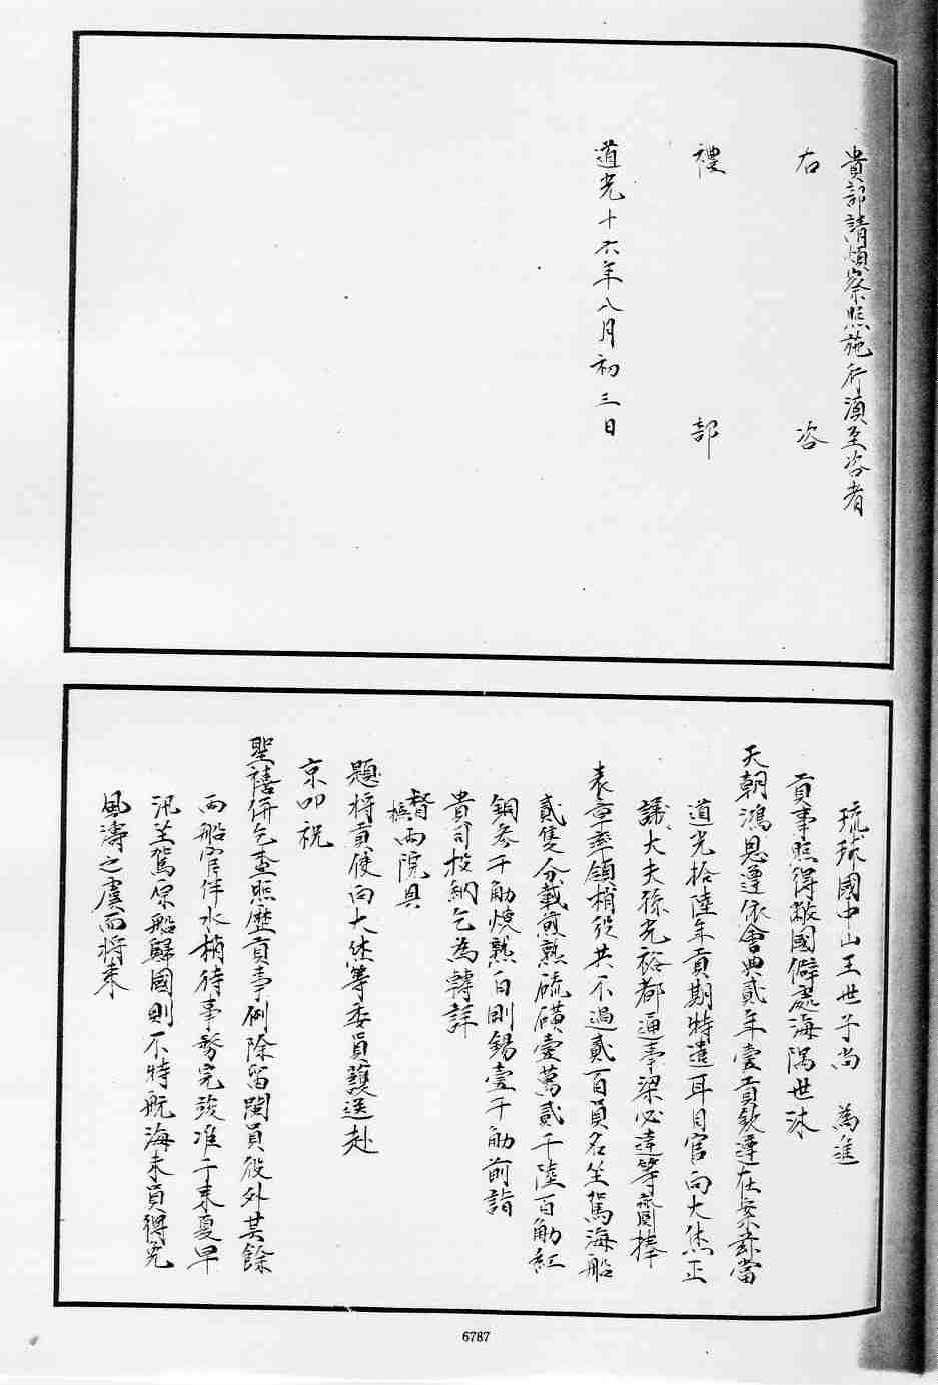 貴部請煩察照施行須至咨者
右咨
禮部
道光十六年八月初三日
琉球國中山王世子尚 為進
貢事照得敝國僻處海隅世沐
天朝鴻恩遵依會典貳年壹貢欽遵在案茲當
道光拾陸年貢期特遣耳目官向大烋正
議大夫孫光裕都通事梁必達等齎捧
表章率領梢役共不過貳百員名坐駕海船
貳隻分載煎熟硫磺壹萬貳千陸百觔紅
銅參千觔煉熟白剛錫壹千觔前詣
貴司投納乞為轉詳
督撫兩院具
題將貢使向大烋等委員護送赴
京叩祝
聖禧併乞查照歷貢事例除留閩員役外其餘
兩船官伴水梢待事務完竣准于來夏早
汛坐駕原船歸國則不特航海末員得免
風濤之虞而將來
6787